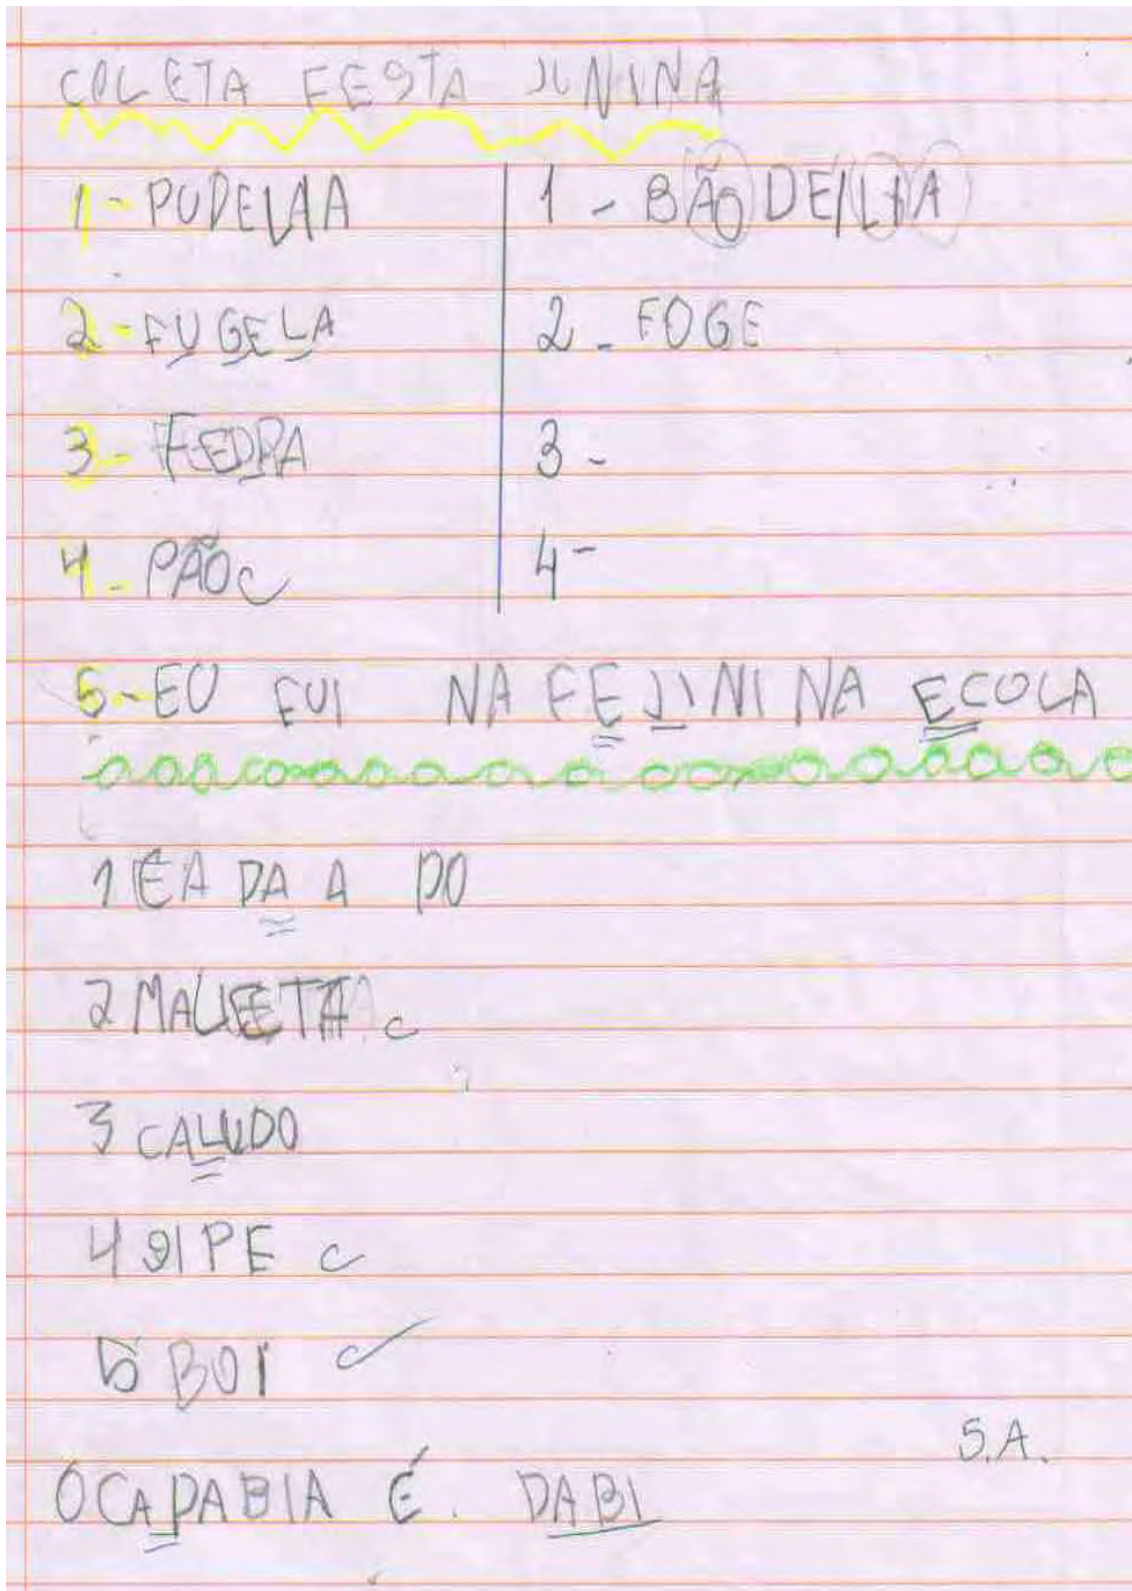 COLETA FESTA JUNINA
1 - PUDELIA
2 - FUGELA
3 - FEDRA
4 - PÃO C
1 - BÃODEILIA
2 - FOGE
3 -
4 -
5 - EU FUI NA FEJINI NA ECOLA
1 EA DA A DO
2 MALEETA C
3 CALUDO
4 GIPE C
5 BOI
S.A.
OCAPABIA É. DABI